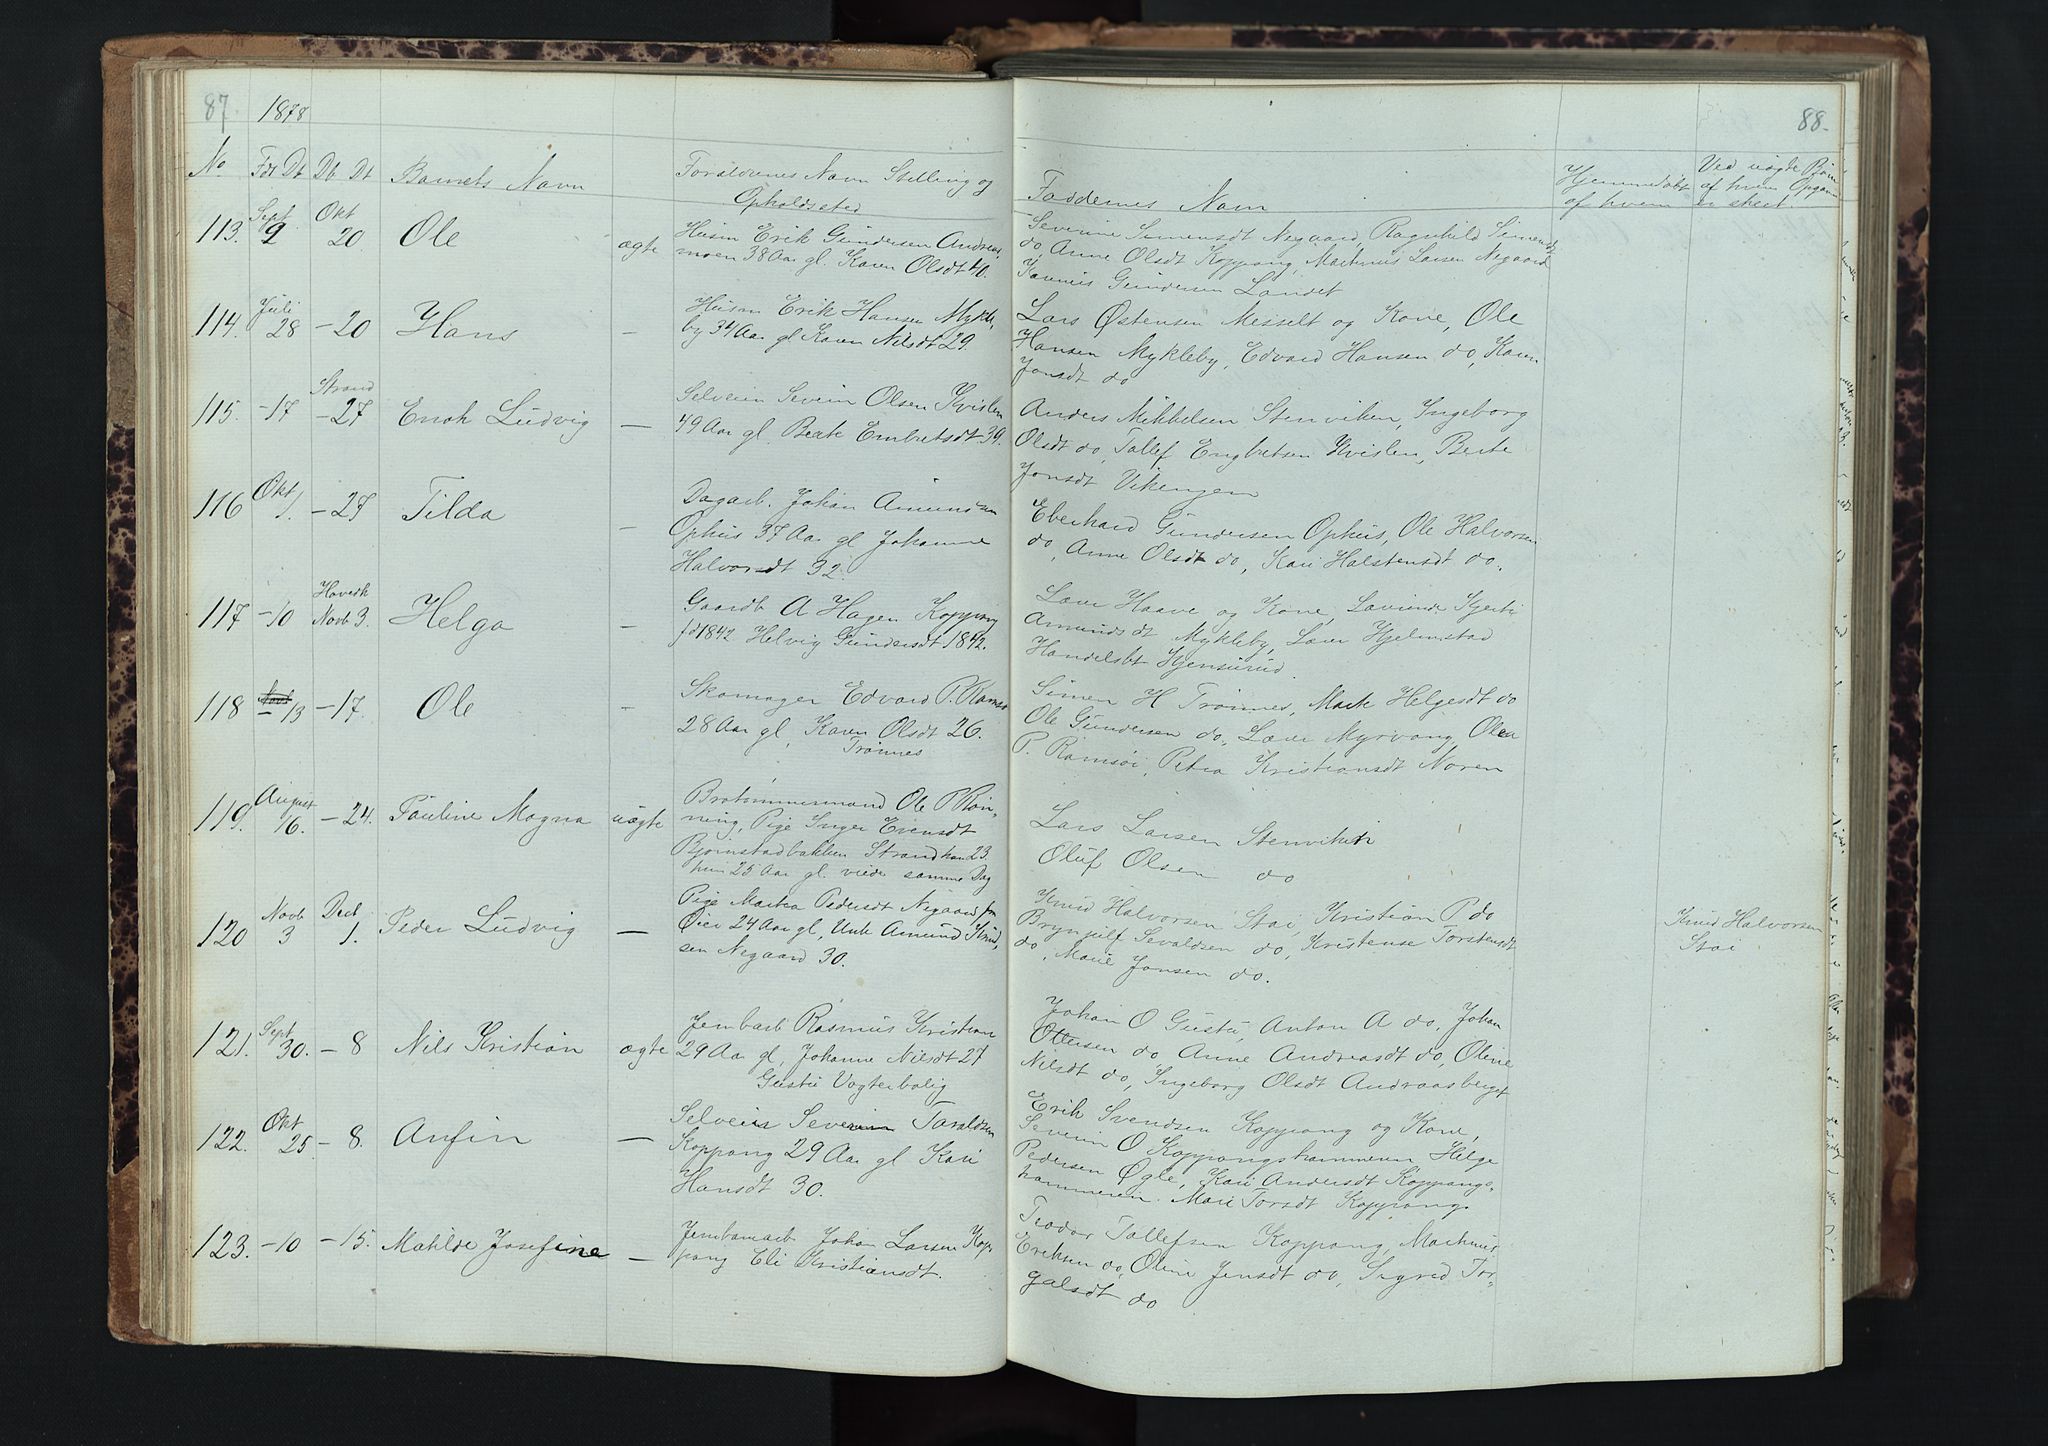 87. 1878
No Fdt Dt Db Dt Barnets Navn Forældrenes Navn Stilling og
Opholdssted
113. Sept 9 Okt 20. Ole ægte Husm Erik Gundersen Andreas,
moen 38 Aar gl. Karen Olsdt 40.
114. Juli 28 - 20 Hans - Husm Erik Hansen Mykle,
by 34 Aar gl Karen Nilsdt 29.
115. - 17 Strand - 27 Enok Ludvig - Selveier Severin Olsen Kvislen
49 Aar gl. Berte Embretsdt 39.
116 Okt 1. - 27 Tilda - Dagarb. Johan Amundsen
Ophus 37 Aar gl Johanne
Halvorsdt 32.
117 - 10 Hovedk Novb 3. Helga - Gaardb A Hagen Koppang
fd 1842 Helvig Gundersdt 1842.
118 - 13 - 17. Ole - Skomager Edvard P. Ramsø
28 Aar gl, Karen Olsdt 26.
Trønnes
119. August 16. - 24. Pauline Magna uægte Brotømmermand Ole P Røn-
ning, Pige Inger Evensdt
Bjørnstadbakken Strand han 23.
hun 25 Aar gl. viede samme Dag
120 Novb 3 Decb 1. Peder Ludvig - Pige Marka Pedersdt Negaard fra
Øier 24 Aar gl, Unk Amund Knud,
sen Negaard 30.
121. Sept 30. - 8 Nils Kristian ægte Jernbarb Rasmus Kristian
29 Aar gl, Johanne Nilsdt 27
Gustu Vogterbolig
122. Okt 25. - 8. Anfin - Selveier Severin Toraldsen
Koppang 29 Aar gl Kari
Hansdt 30.
123. - 10 - 15. Matilde Josefine - Jernbanearb Johan Larsen Kop,
pang Eli Kristiansdt.
88.
Faddernes Navn Hjemmedøbt
af hvem Ved uægte Børn
af hvem Opgave
er skeet.
Severine Simensdt Negaard, Ragnhild Simensdt
do, Anne Olsdt Koppang, Martinus Larsen Negaard
Gundersen Landet
Lars Østensen Messelt og Kone, Ole
Hansen Mykleby, Edvard Hansen do, Karen
Jonsdt do
Anders Mikkelsen Stenviken, Ingeborg
Olsdt do, Tollef Engbretsen Kvislen, Berte
Jonsdt Vikengen
Eberhard Gundersen Ophus, Ole Halvorsen
do, Anne Olsdt do, Kari Halstensdt do.
Lærer Haave og Kone, Lærerinde Kjersti
Amundsdt Mykleby, Lærer Hjelmstad
Handelsbt Hjensurud.
Simen H Trønnes, Marte Helgesdt do
Ole Gundersen do, Lærer Myrvang, Olea
P. Ramsøi, Petra Kristiansdt Noren
Lars Larsen Stenviken
Oluf Olsen do
Knud Halvorsen Stai, Kristian P do Knud Halvorsen
Brynjulf Sevaldsen do, Kristense Torstensdt Stai
do, Marie Jonsen do.
Johan O Gustu, Anton A do, Johan
Ottersen do Anne Andreasdt do, Oline
Nilsdt do, Ingeborg Olsdt Andraasberget
Erik Svendsen Koppang og Kone,
Severin O Koppangshammeren Helge
Pedersen Øgle, Kari Andersdt Koppangs-
hammeren. Mari Torsdt Koppang.
Teodor Tollefsen Koppang, Martinus
Eriksen do, Oline Jensdt do, Sigrid Tor-
galsdt do